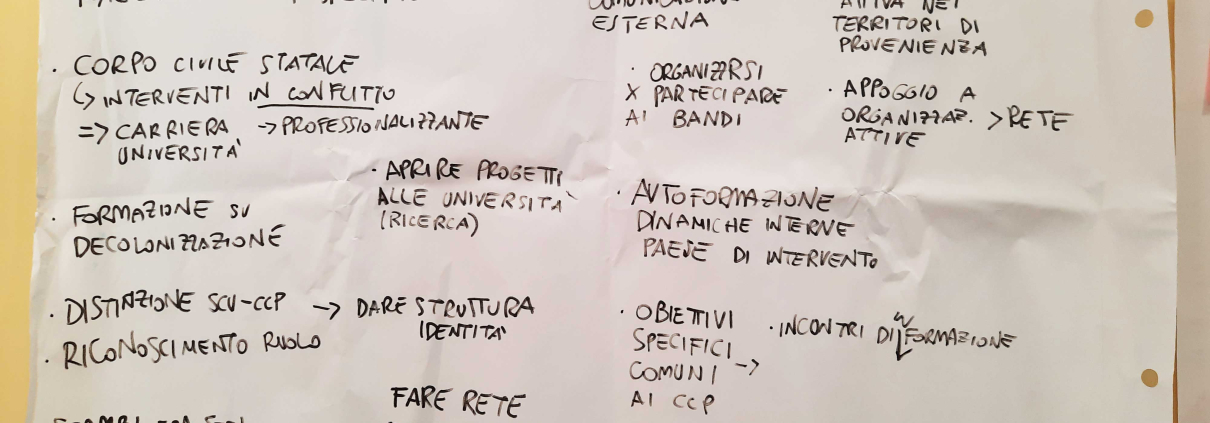 ESTERNA
TERRITORI DI
PROVENIENZA
· CORPO CIVILE STATALE
↳ INTERVENTI IN CONFLITTO
=> CARRIERA -> PROFESSIONALIZZANTE
UNIVERSITA'
· APRIRE PROGETTI
ALLE UNIVERSITA'
(RICERCA)
· FORMAZIONE SU
DECOLONIZZAZIONE
· DISTINZIONE SCU-CCP -> DARE STRUTTURA
IDENTITA'
· RICONOSCIMENTO RUOLO
FARE RETE
· ORGANIZZRSI
X PARTECIPARE
AI BANDI
· APPOGGIO A
ORGANIZZAZ. > RETE
ATTIVE
· AUTOFORMAZIONE
DINAMICHE INTERNE
PAESE DI INTERVENTO
· OBIETTIVI
SPECIFICI ->
COMUNI
AI CCP
· INCONTRI DI FORMAZIONE